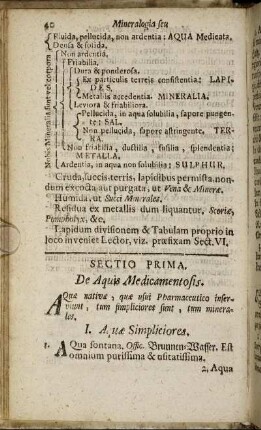 40 Mineralogia seu
Nobis Mineralia sunt vel corpora
Fluida, pellucida, non ardentia: AQUA Medicata.
Densa & solida.
Non ardentia.
Friabilia.
Dura & ponderosa.
Ex particulis terreis consistentia: LAPI-
DES.
Metallis accedentia. MINERALIA.
Leviora & friabiliora.
Pellucida, in aqua solubilia, sapore pungen-
te: SAL.
Non pellucida, sapore astringente, TER-
RA.
Non friabilia, ductilia, fusilia, splendentia:
METALLA.
Ardentia, in aqua non solubilia: SULPHUR.
Cruda, succis, terris, lapidibus permista, non-
dum excocta aut purgata, ut Venæ & Mineræ.
Humida, ut Succi Minerales.
Residua ex metallis dum liquantur, Scoriæ,
Pompholyx, &c.
Lapidum divisionem & Tabulam proprio in
loco inveniet Lector, viz. præfixam Sect. VI.
SECTIO PRIMA.
De Aquis Medicamentosis.
AQuæ nativæ, quæ usui Pharmaceutico inser-
viunt, tum simpliciores sunt, tum minera-
les.
I. Aquæ Simpliciores.
1. AQua fontana. Offic. Brunnen-Wasser. Est
omnium purissima & usitatissima.
2. Aqua